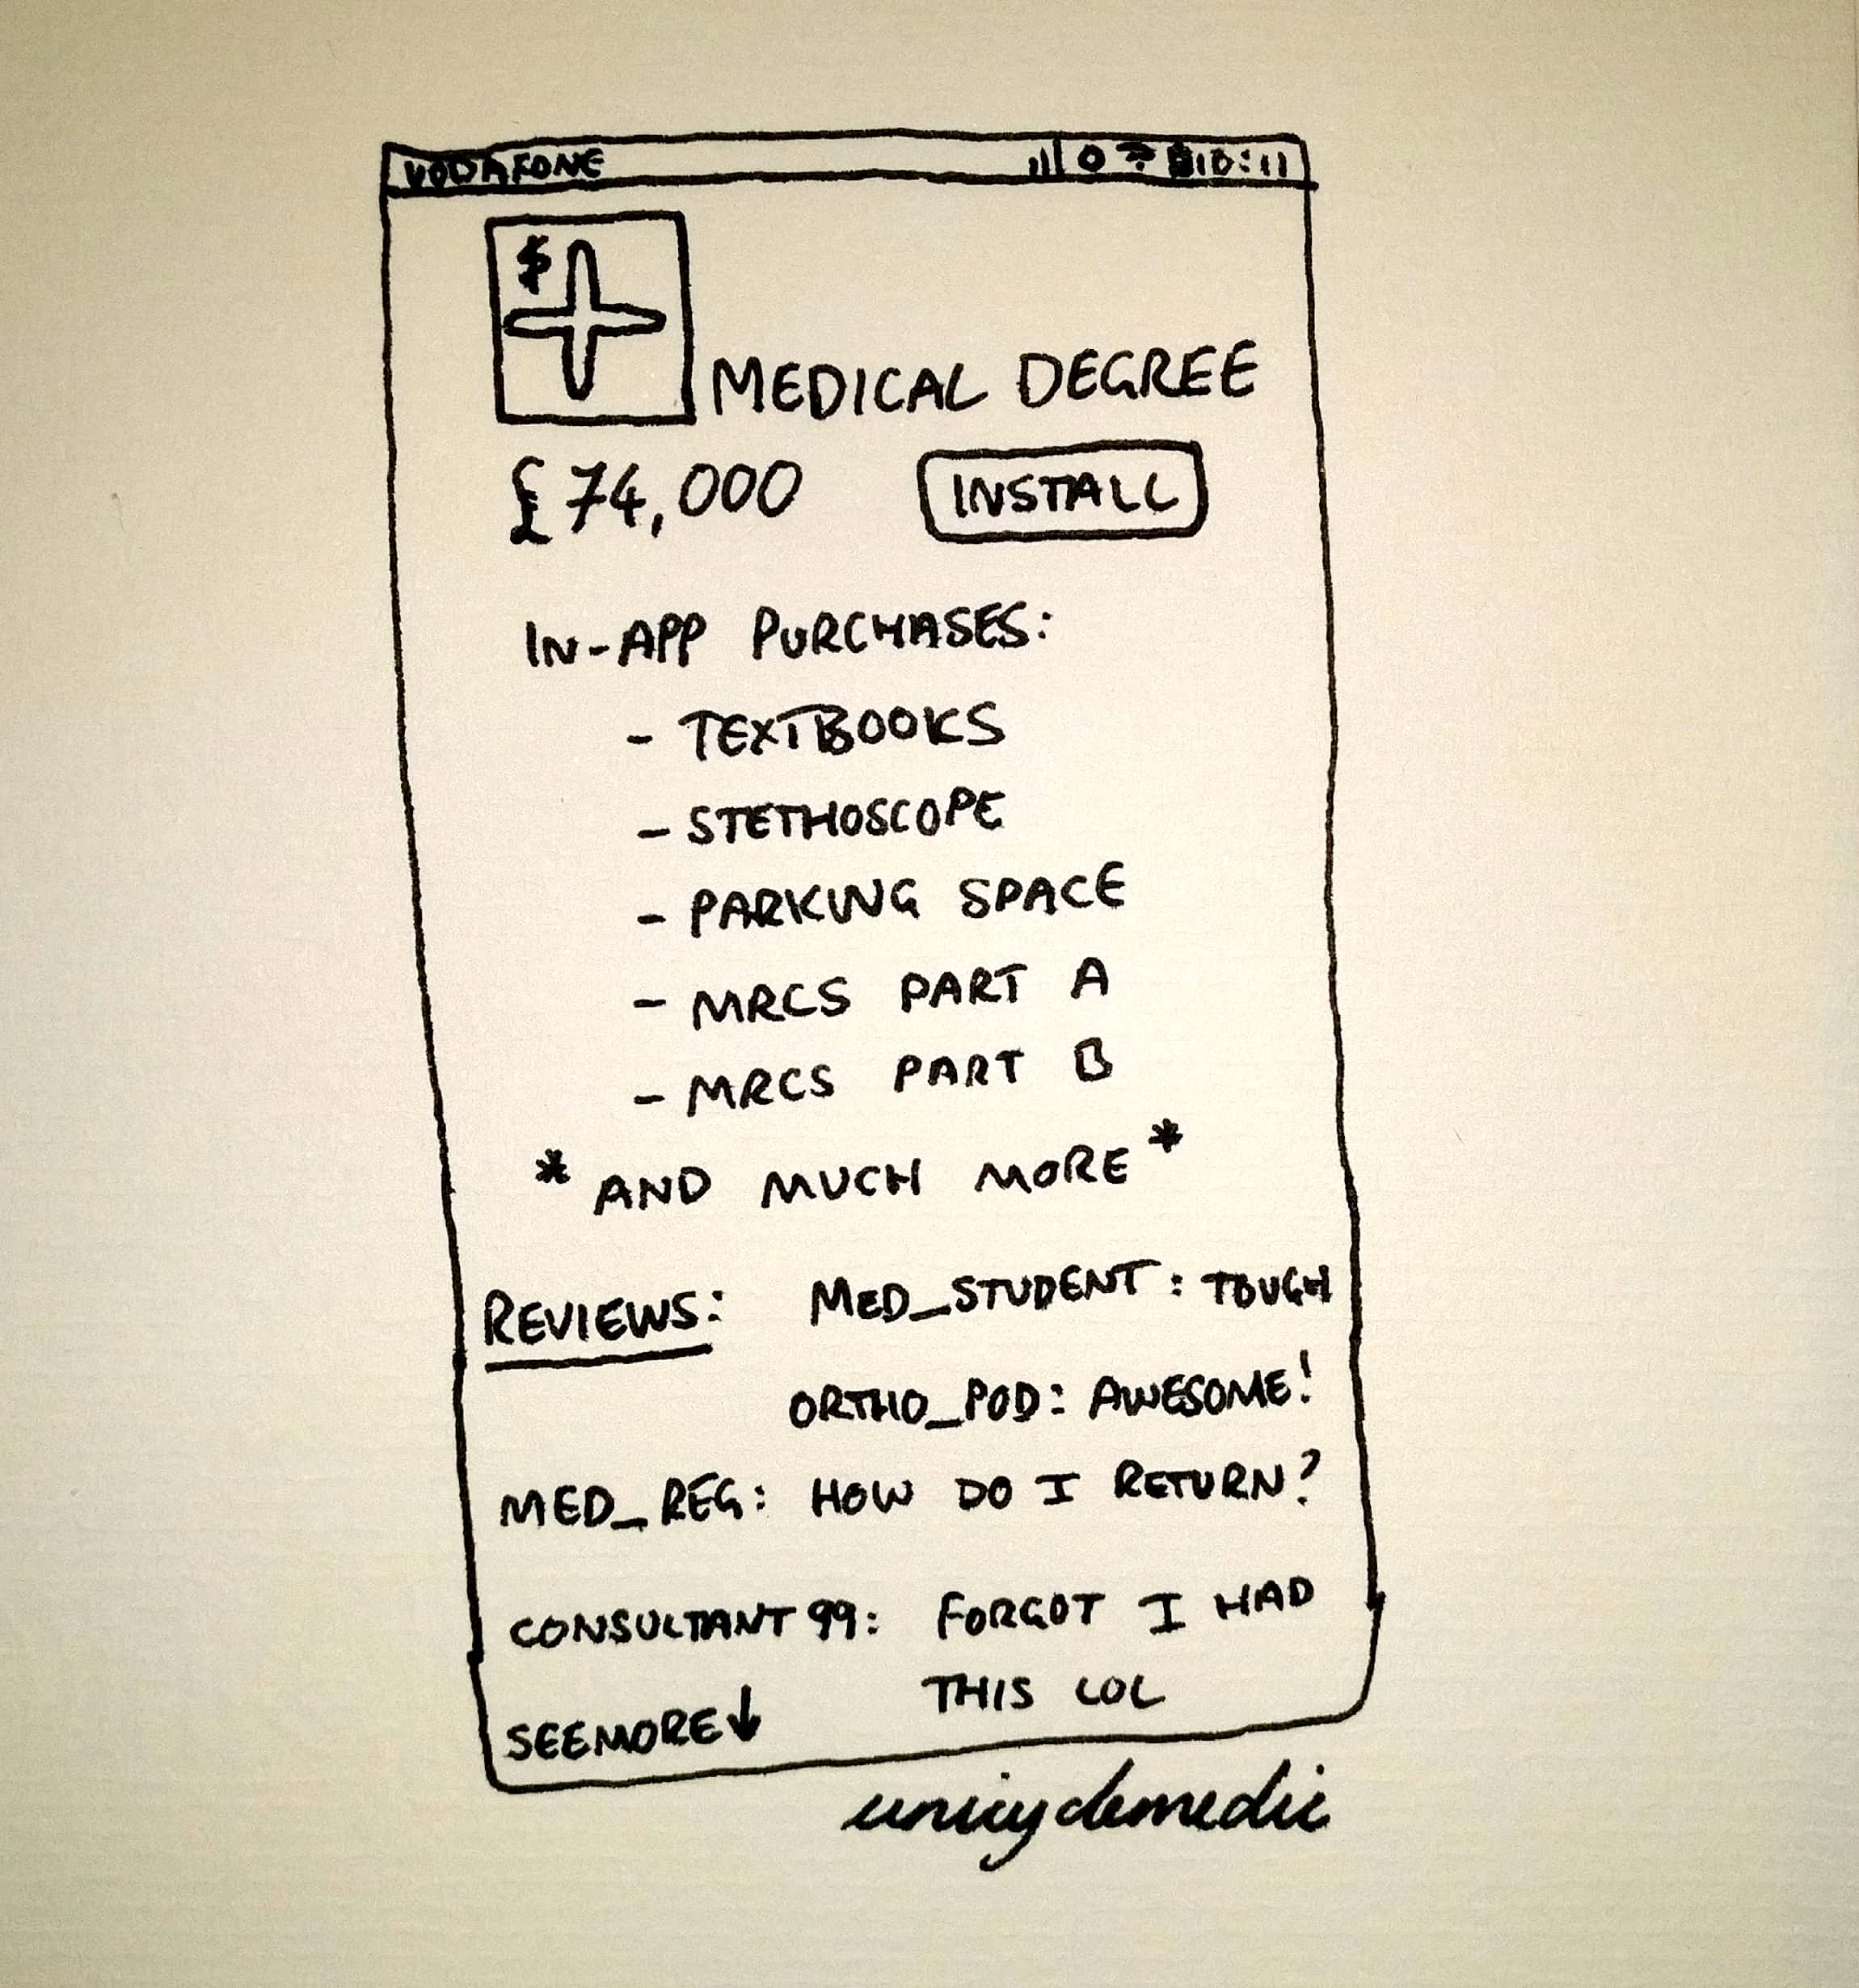 VODAFONE 10:11
$
MEDICAL DEGREE
£74,000 INSTALL
IN-APP PURCHASES:
- TEXTBOOKS
- STETHOSCOPE
- PARKING SPACE
- MRCS PART A
- MRCS PART B
* AND MUCH MORE *
REVIEWS: MED_STUDENT: TOUGH
ORTHO_POD: AWESOME!
MED_REG: HOW DO I RETURN?
CONSULTANT99: FORGOT I HAD
THIS LOL
SEEMORE↓
unicyclemedic